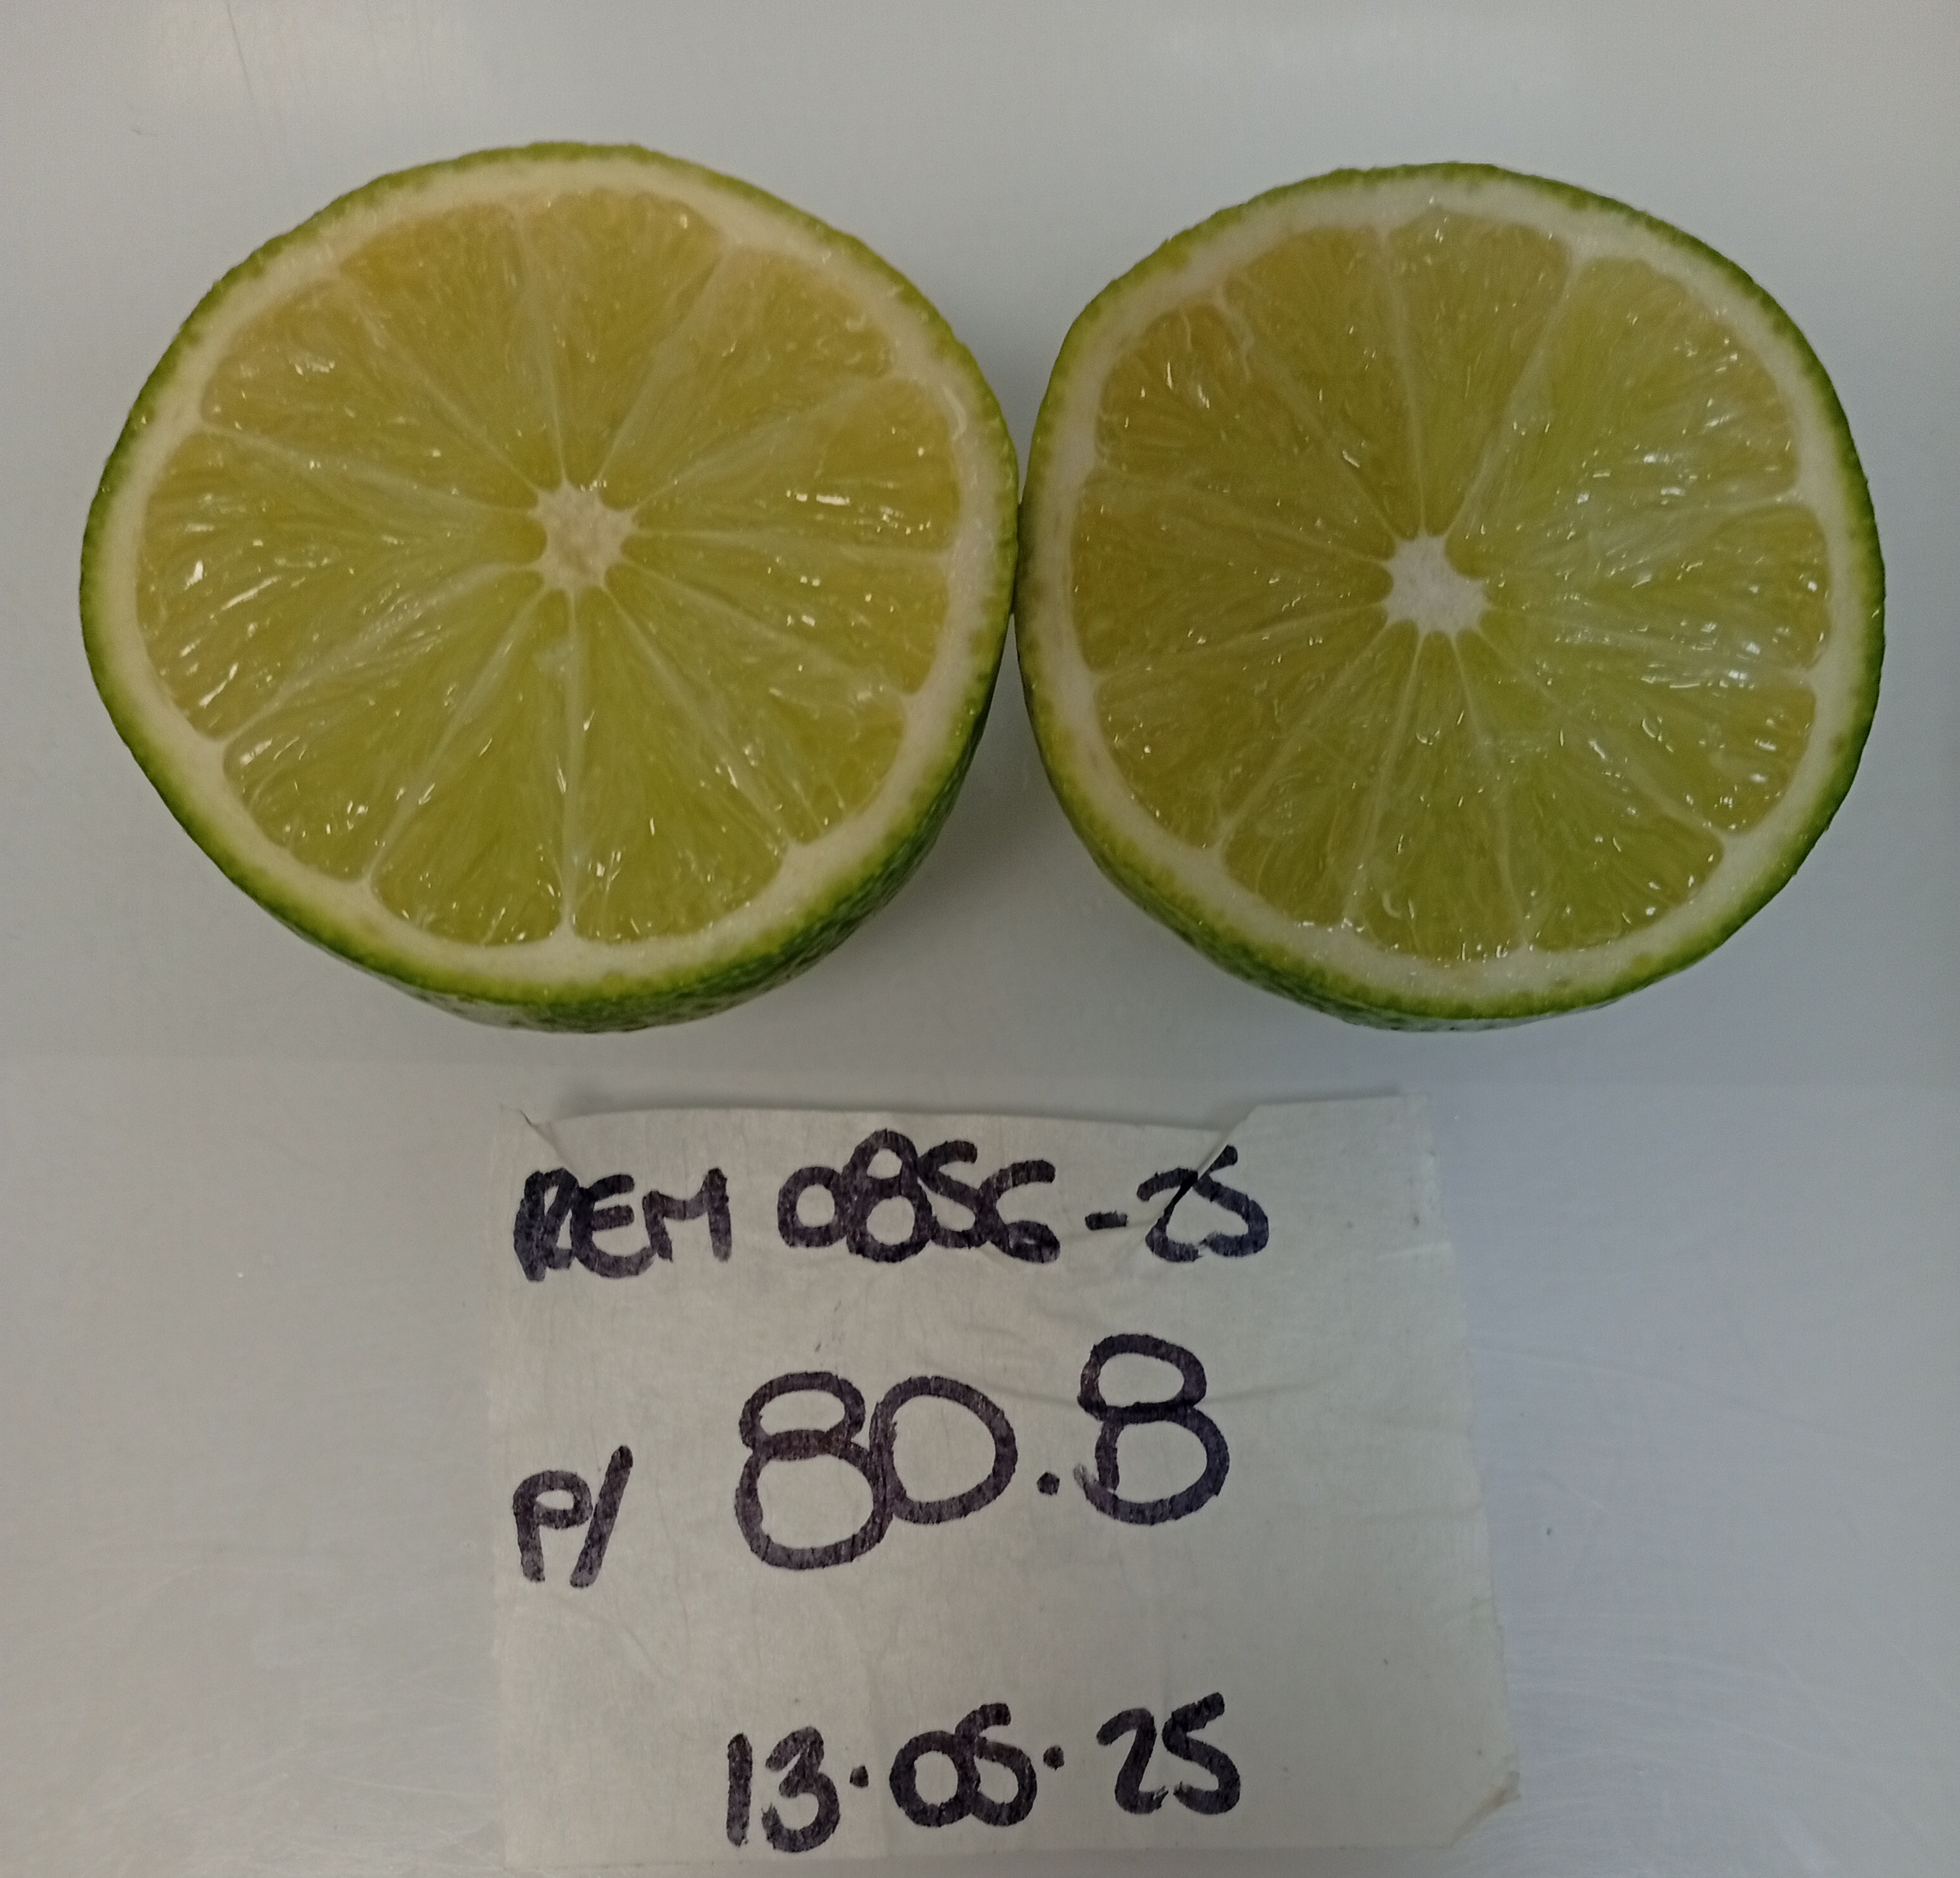 REM 0856-25
P/ 80.8
13.05.25